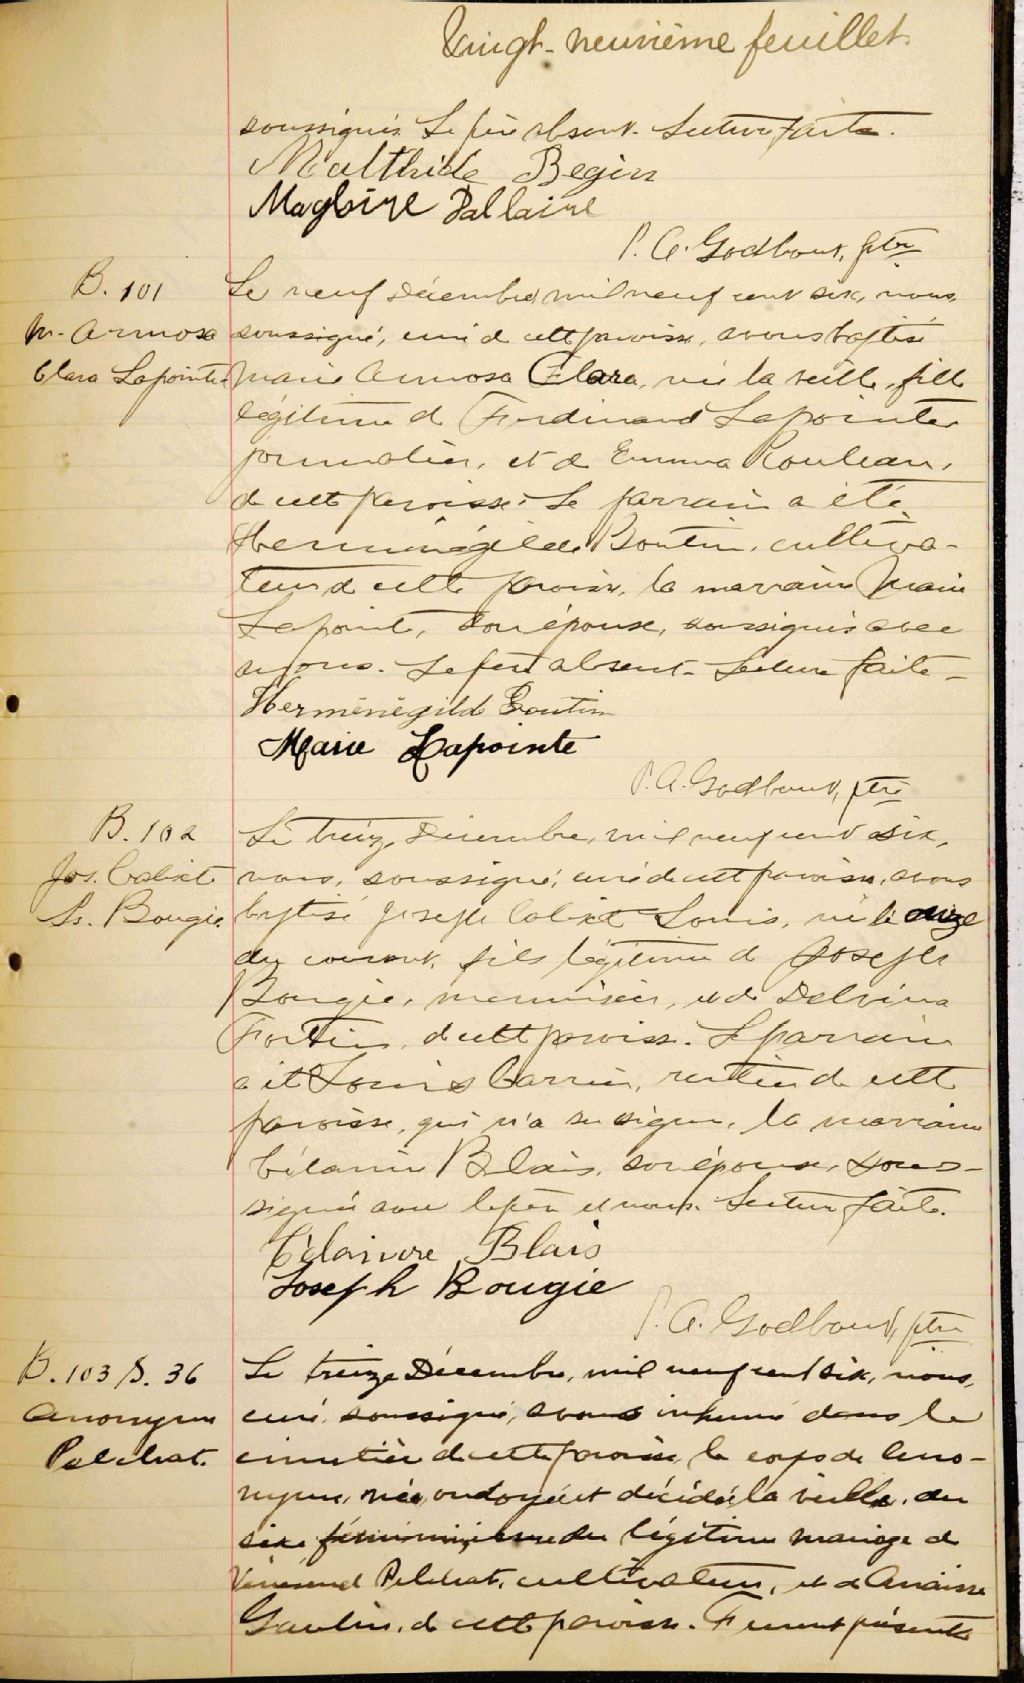 Vingt-neuvième feuillet.
soussignés. Le père absent. Lecture faite.
Malthilde Begin
Magloire Dallaire
P. A. Godbout, ptre
B. 101
M. Armosa
Clara Lapointe
Le neuf Décembre, mil neuf cent six, nous,
soussigné, curé de cette paroisse, avons baptisé
Marie Armosa Clara, née la veille, fille
légitime de Ferdinand Lapointe
journalier, et de Emma Rouleau,
de cette paroisse. Le parrain a été
Herménégilde Boutin, cultiva-
teur de cette paroisse, la marraine Marie
Lapointe, son épouse, soussignés avec
nous. Le père absent. Lecture faite -
Herménégilde Boutin
Marie Lapointe
P. A. Godbout, ptre
B. 102
Jos. Calixt
Ls. Bougie
Le treize Décembre, mil neuf cent six,
nous, soussigné, curé de cette paroisse, avons
baptisé Joseph Calixt Louis, né le onze
du courant, fils légitime de Joseph
Bougie, menuisier, et de Delvina
Fortin, de cette paroisse. Le parrain
a été Louis Carrier, rentier de cette
paroisse, qui n'a su signer, la marraine
Célanire Blais, son épouse, sous-
signée avec le père et nous. Lecture faite.
Célanire Blais
Joseph Bougie
P. A. Godbout, ptre
B. 103 S. 36
Anonyme
Pelchat.
Le treize Décembre, mil neuf cent six, nous,
curé soussigné, avons inhumé dans le
cimetière de cette paroisse, le corps de l'ano-
nyme, née, ondoyée et décédée la veille, du
sexe féminin, du légitime mariage de
Pelchat, cultivateur, et de Anaïsse
Gaulin, de cette paroisse. Furent présents